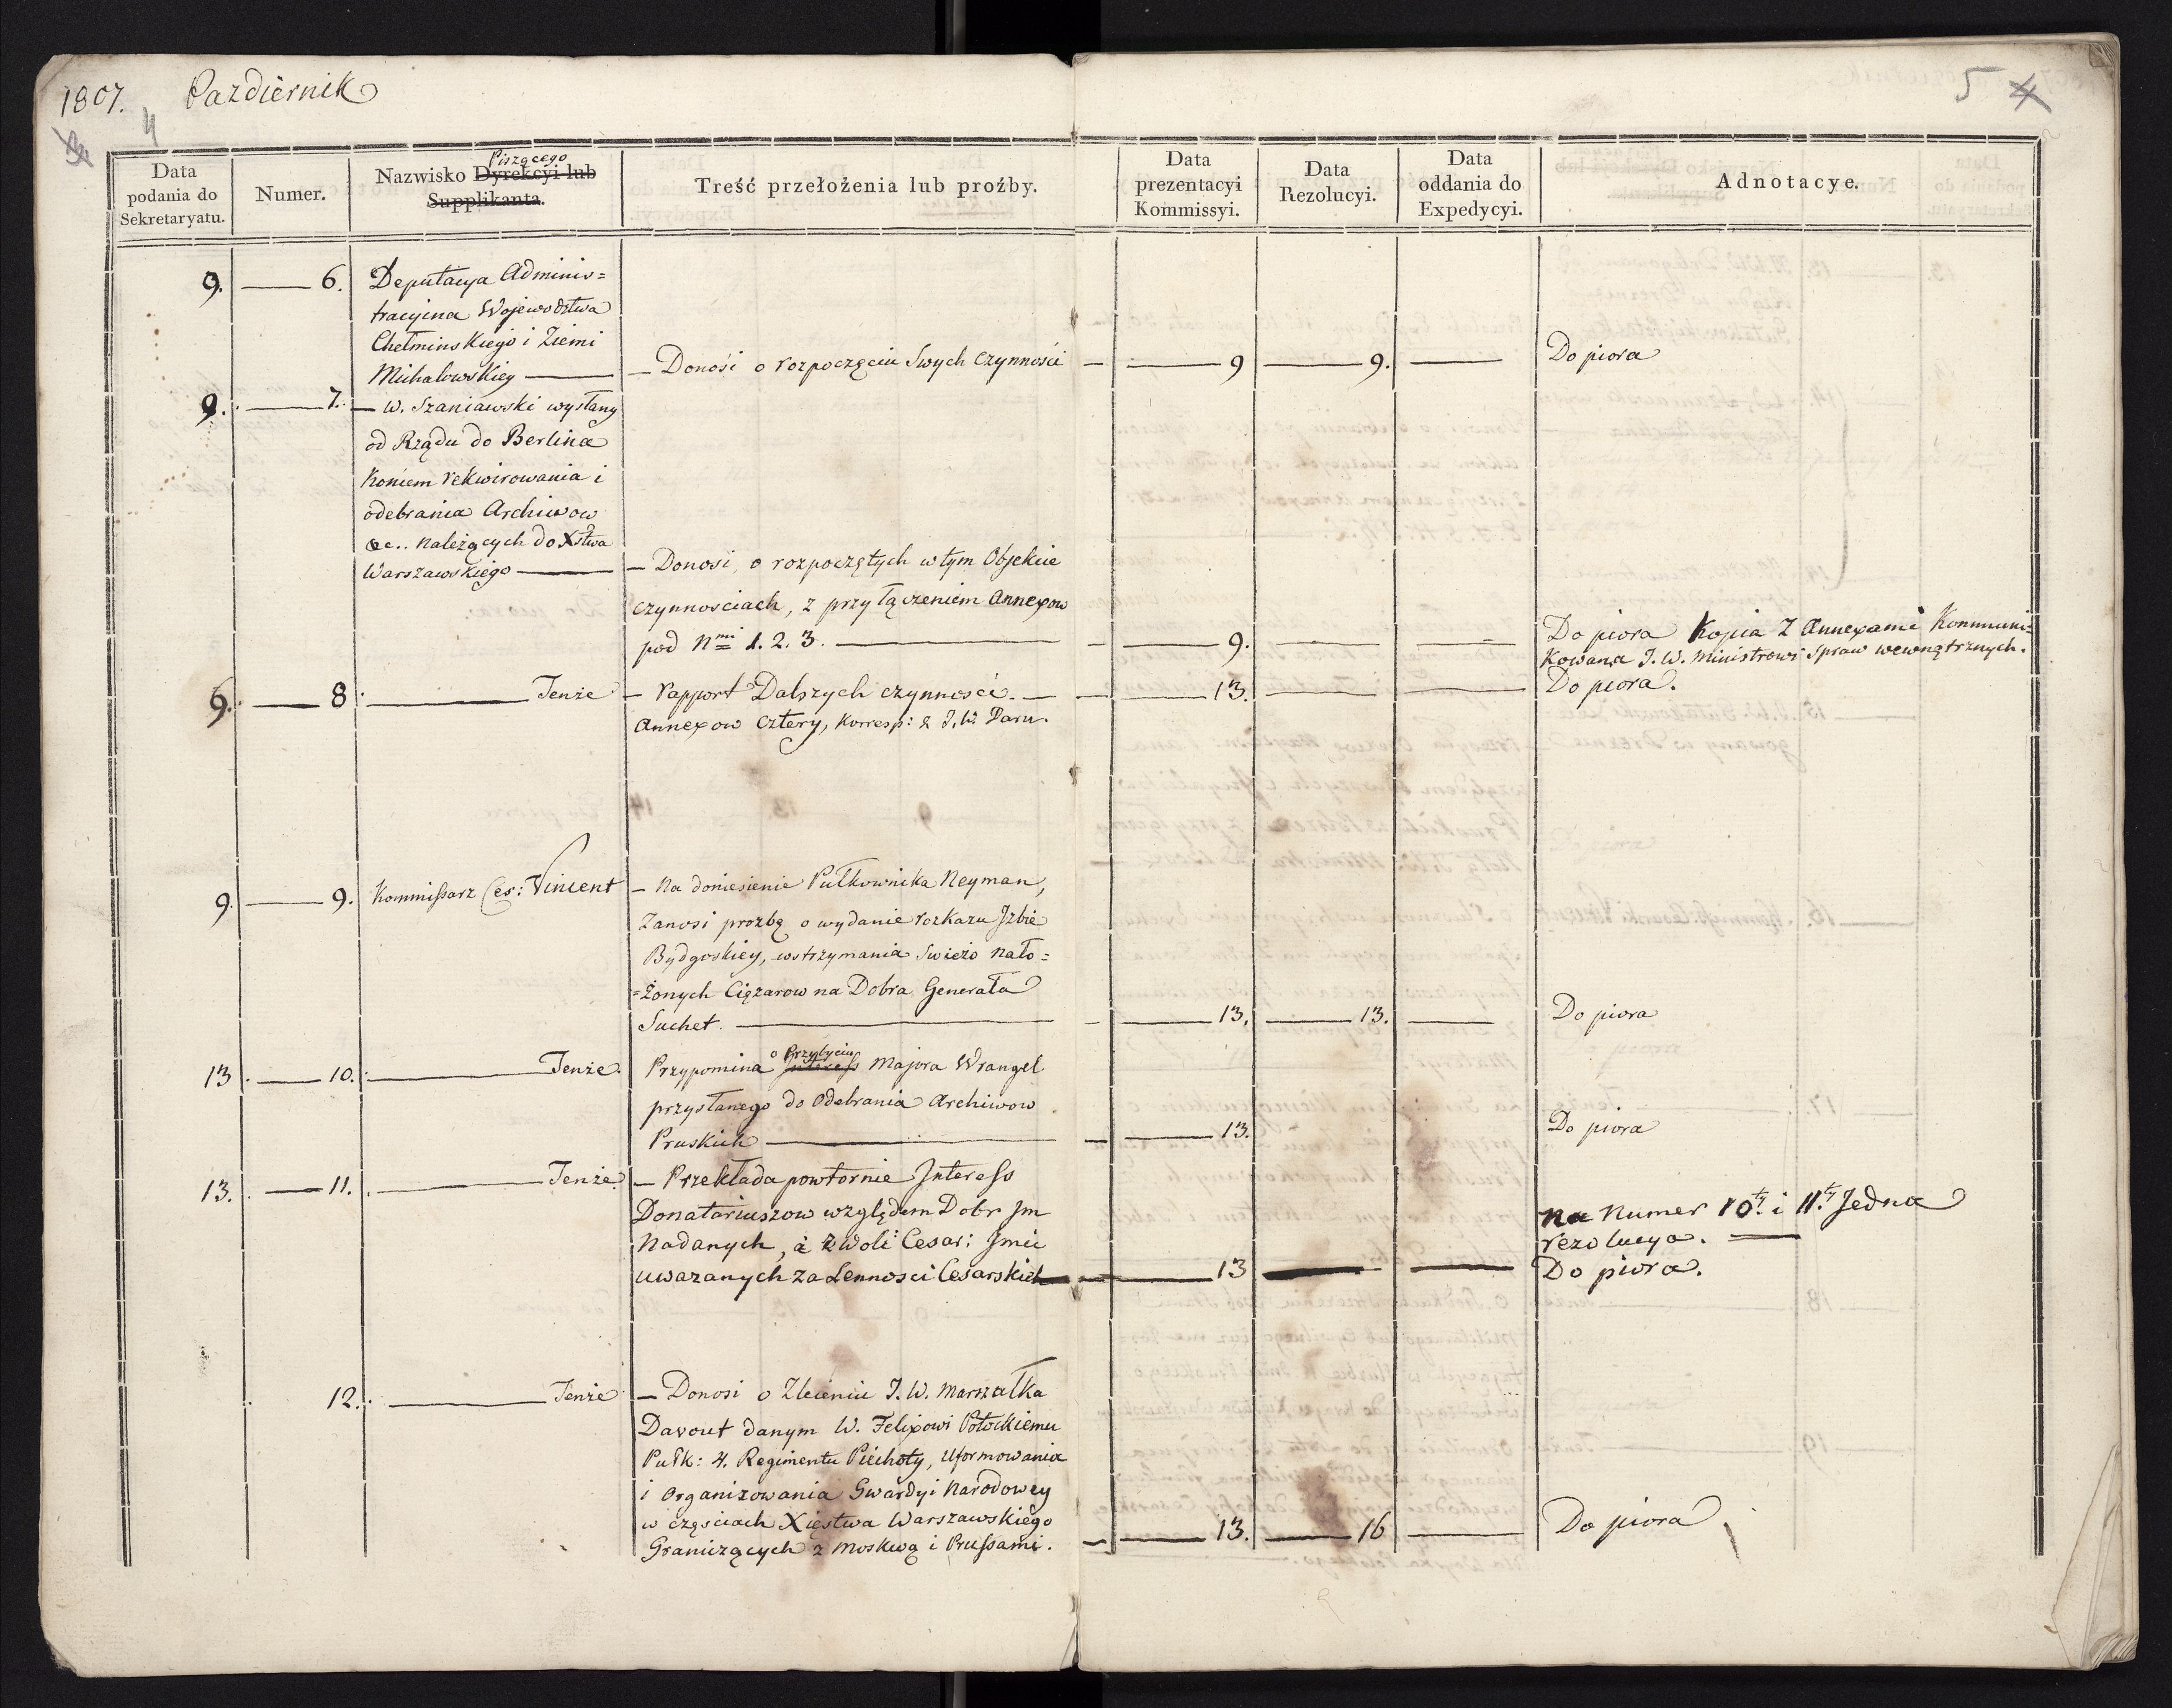 1807. Pazdiernik
4
5 4
Data podania do Sekretaryatu.
Numer.
Piszącego
Nazwisko Dyrekcyi lub
Supplikanta.
Treść przełożenia lub proźby.
Data prezentacyi Kommissyi.
Data Rezolucyi.
Data oddania do Expedycyi.
Adnotacye.
9. — 6. Deputacya Adminis=
tracyina Wojewodztwa
Chełminskiego i Ziemi
Michałowskiey — — Donośi o rozpoczęciu Swych Czynnośći — — 9 — 9. — Do piora
9. — 7. — W. Szaniawski wysłany
od Rządu do Berlina
Koniem rekwirowania i
odebrania Archiwow
&c.. należących do Xstwa
Warszawskiego — — Donosi, o rozpoczętych w tym Objekcie
czynnosciach, z przyłączeniem Annexow
pod Nmi 1. 2. 3. — — 9. — — Do piora Kopia Z Annexami Kommuni=
kowana J. W. Ministrowi Spraw wewnątrznych.
9. — 8 — Tenże — rapport Dalszych czynności. — — 13. — — Do piora.
Annexow Cztery, Korresp: z J. W. Daru.
9. — 9. Kommissarz Ces: Vincent — Na doniesienie Pułkownika Neyman,
Zanosi prozbę o wydanie rozkazu Jzbie
Bydgoskiey, wstrzymania Swieżo nało=
=żonych Ciężarow na Dobra Generała
Suchet. — — 13. — 13. — Do piora
13. — 10. — Tenże. Przypomina o Przybyciu Interess Majora Wrangel
przysłanego do Odebrania Archiwow
Pruskich — — 13. Do piora
13. — 11. — Tenże. — Przekłada powtornie Jnteress
Donatariuszow względem Dobr Jm
Nadanych, a z Woli Cesar: Jmci
uwazanych za Lennosci Cesarskich — — 13 — — Na Numer 10ty i 11ty Jedna
rezolucya. —
Do piora.
12. — Tenże — Donosi o Zleceniu J. W. Marszałka
Davout danym W. Felixowi Potockiemu
Pułk: 4. Regimentu Piechoty, Uformowania
i Organizowania Gwardyi Narodowey
w częściach Xięstwa Warszawskiego
Graniczących z Moskwą i Prussami. — — 13. — 16 — Do piora